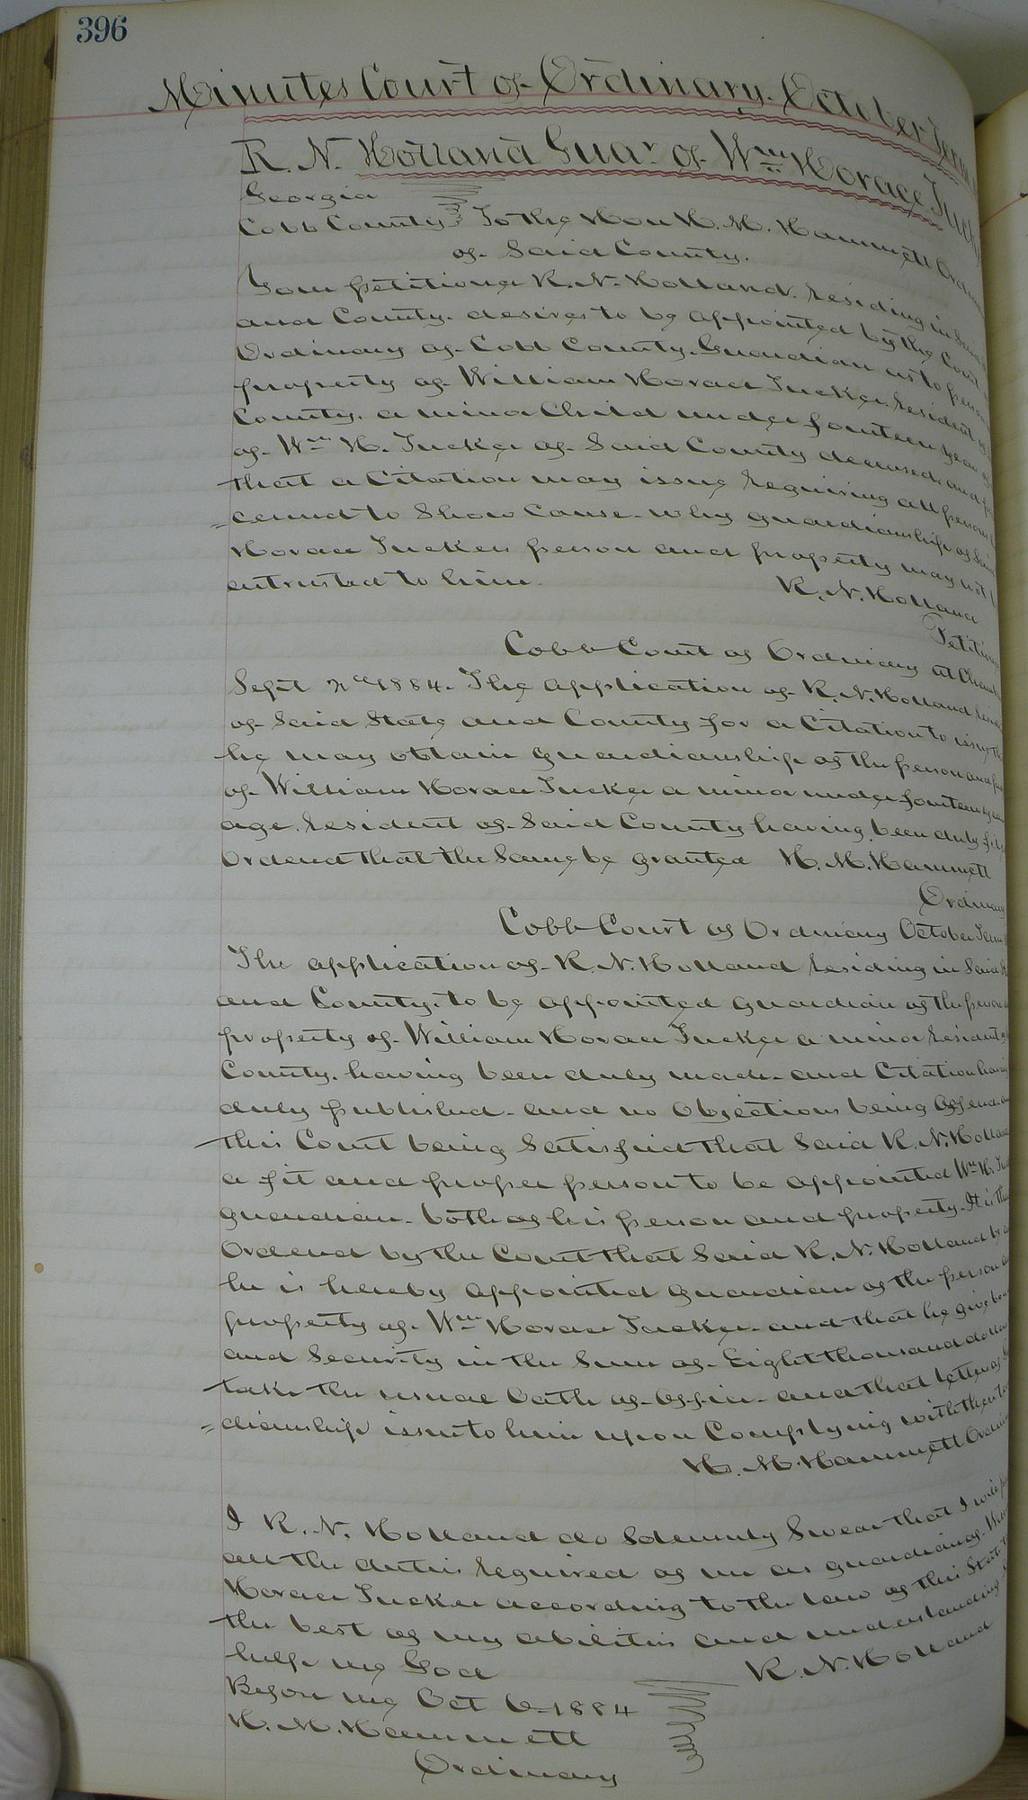 396
Minutes Court of Ordinary. October Term
R. N. Holland Guar of Wm Horace Tuck
Georgia
Cobb County To the Hon H. M. Hammett Ordin
of Said County.
Your petitioner R. N. Holland. residing in Said
and County. desires to be appointed by the Court
Ordinary of Cobb County. Guardian as to person
property of William Horace Tucker. resident of
County. a minor Child under fourteen years
of Wm H. Tucker of Said County deceased, and
that a Citation may issue requiring all persons
=cerned to Show Cause why guardianship of Said
Horace Tuckers person and property may not
entrusted to him.
R. N. Holland
Petition
Cobb Court of Ordinary at Cham
Sept 2nd 1884. The application of R. N. Holland
of Said State and County for a Citation to issue
he may obtain guardianship of the person and
of William Horace Tucker a minor under fourteen
age. resident of Said County having been duly
Ordered that the Same be granted H. M. Hammett
Ordinary
Cobb Court of Ordinary October Term
The application of R. N. Holland residing in Said
and County. to be appointed guardian of the person
property of William Horace Tucker a minor resident
County. having been duly made and Citation having
duly published and no Objections being
this Court being Satisfied that Said R. N. Holland
a fit and proper person to be appointed Wm H.
guardian. both of his person and property. It is
Ordered by the Court that Said R. N. Holland
he is hereby appointed guardian of the person
property of Wm Horace Tucker and that he give
and Security in the Sum of Eight thousand dollars
take the usual Oath of Office and that letters of
=dianship issue to him upon Complying with
H. M. Hammett Ordin
I R. N. Holland do Solemnly Swear that I will
all the duties required of me as guardian of
Horace Tucker according to the law of this State
the best of my abilities and understanding
help me God
R. N. Holland
Before me Oct 6 1884
H. M. Hammett
Ordinary